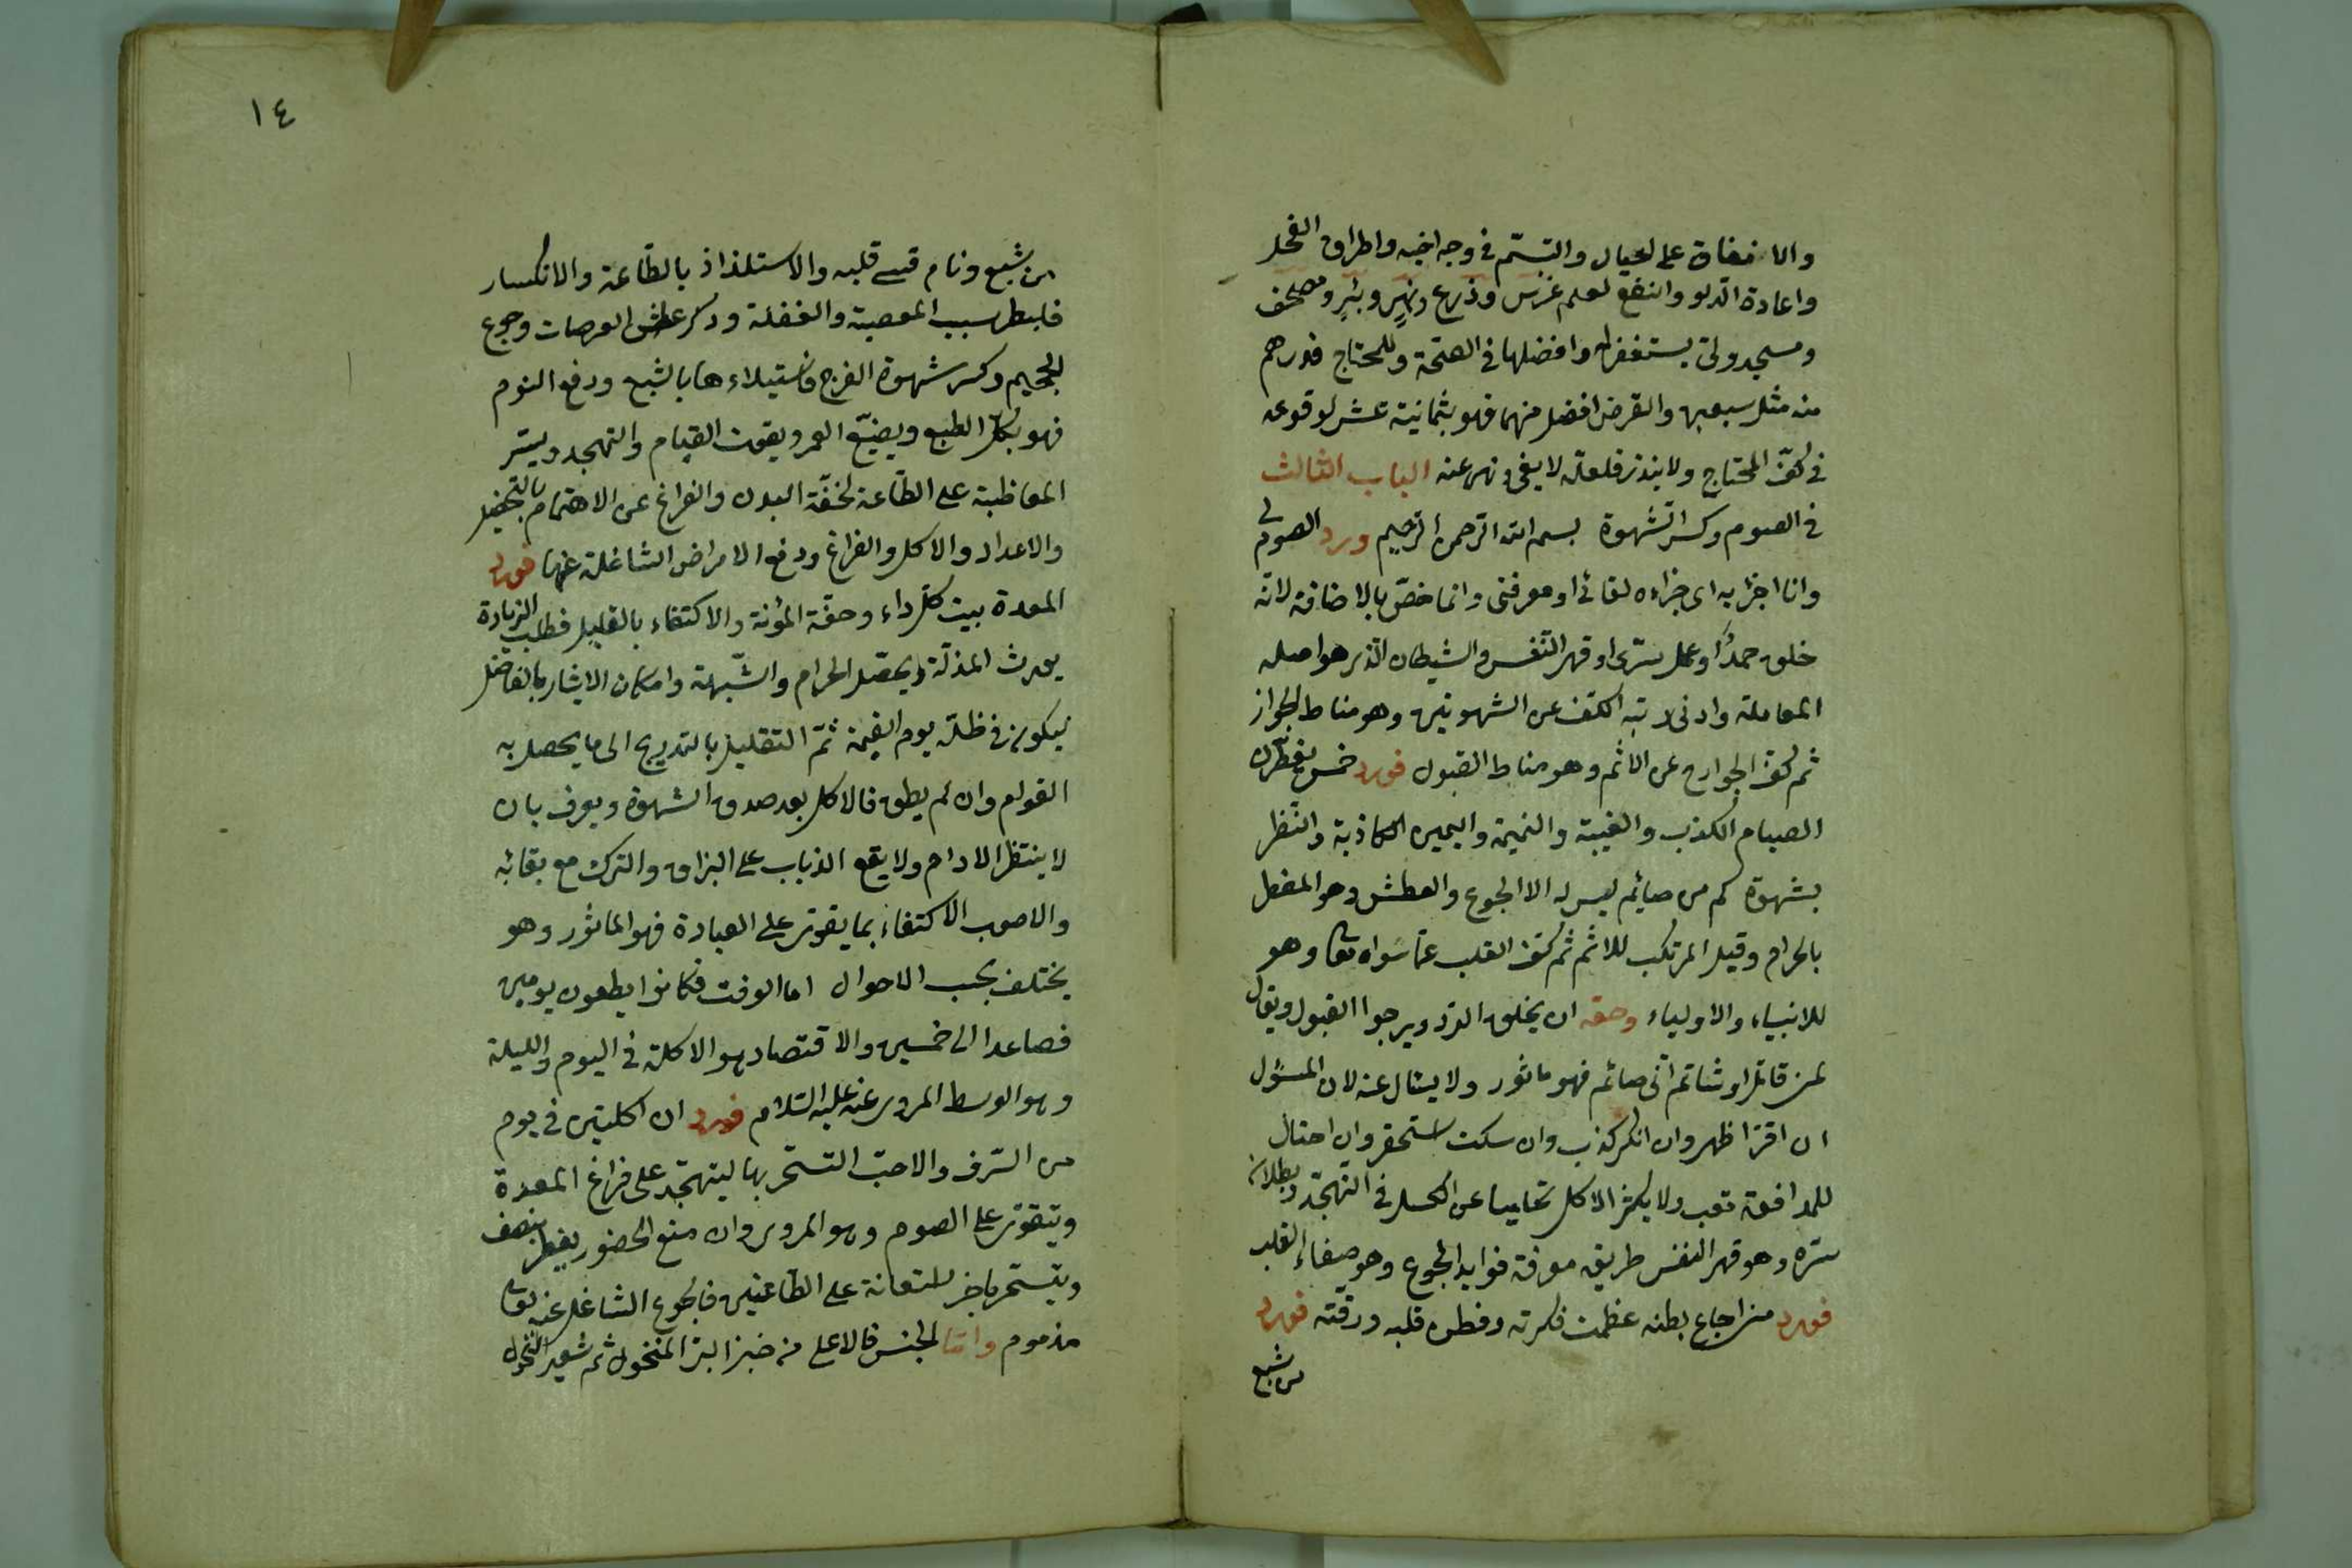 والانفاق على العيال والتبسّم فى وجه اخيه واطراق الفحل
واعادة الدلو والنفع لعلم غرس وزرع ونهر وبئر ومصحف
ومسجد وولد يستغفر له وافضلها فى الصحّة وللمحتاج فدرهم
منه مثل سبعين والقرض افضل منهما فهو بثمانية عشر لوقوعه
فى كفّ المحتاج ولا ينذر فلعلّه لا يفى ونهى عنه الباب الثالث
فى الصوم وكسر الشهوة بسم الله الرحمن الرحيم ورد الصوم لى
وانا اجزى به اى جزاءه لقائى او معرفتى وانما خصّ بالاضافة لانّه
خلق صمدا او عمل سرّى او قهر النّفس والشيطان الذى هو اصله
المعاملة وادنى رتبه الكفّ عن الشهوتين وهو مناط الجواز
ثم كفّ الجوارح عن الاثم وهو مناط القبول فورد خمس يفطّرن
الصيام الكذب والغيبة والنميمة واليمين الكاذبة والنّظر
بشهوة كم من صائم ليس له الا الجوع والعطش وهو المفطر
بالحرام وقيل المرتكب للاثم ثم كفّ القلب عمّا سواه تعا وهو
للانبياء والاولياء وحقه ان يخاف الردّ ويرجوا القبول ويقال
لمن قاتل او شاتم انّى صائم فهو ماثور ولا يسئال عنه لان المسؤل
ان اقرّ اظهر وان انكر كذب وان سكت استحقر وان احتال
للمدافعة تعب ولا يكثر الاكل تحاميا عن الكسل فى التهجّد وبطلان
سرّه وهو قهر النفس طريقه معرفة فوايد الجوع وهو صفاء القلب
فورد من اجاع بطنه عظمت فكرته وفطن قلبه ورقّته فورد
من شبع
١٤
من شبع ونام قسى قلبه والاستلذاذ بالطّاعة والانكسار
فالبطر سبب المعصية والغفلة وذكر عطش العرصات وجوع
الجحيم وكسر شهوة الفرج فاستيلاءها بالشبع ودفع النوم
فهو يكلّ الطبع ويضيّع العمر ويفوت القيام والتهجد ويتيسّر
المواظبة على الطّاعة لخفّة البدن والفراغ عن الاهتمام بالتحصيل
والاعداد والاكل والفراغ ودفع الامراض الشاغلة عنها فورد
المعدة بيت كلّ داء وخفّة المؤنة والاكتفاء بالقليل فطلب الزيادة
يورث المذلّة ويحصّل الحرام والشّبهة وامكان الايثار بالفاضل
ليكون فى ظلّه يوم القيمة ثمّ التقليل بالتدريج الى ما يحصل به
القوام وان لم يطق فالاكل بعد صدق الشهوة ويعرف بان
لا ينتظر الادام ولا يقع الذباب على البزاق والترك مع بقائه
والاصوب الاكتفاء بما يقوّى على العبادة فهو الماثور وهو
يختلف بحسب الاحوال اما الوقت فكانوا يطعون يومين
فصاعدا الى خمسين والاقتصاد هو الاكلة فى اليوم والليلة
وهو الوسط المروى عنه عليه السّلام فورد ان اكلتين فى يوم
من السّرف والاحبّ التسحّر بها ليتهجّد على فراغ المعدة
ويتقوّى على الصوم وهو المروى وان منع الحضور يفطر بنصف
ويتسحّر باخر استعانة على الطّاعتين فالجوع الشاغل عنه تعا
مذموم وامّا الجنس فالاعلى منه خبز البرّ المنخول ثم شعير المنخول